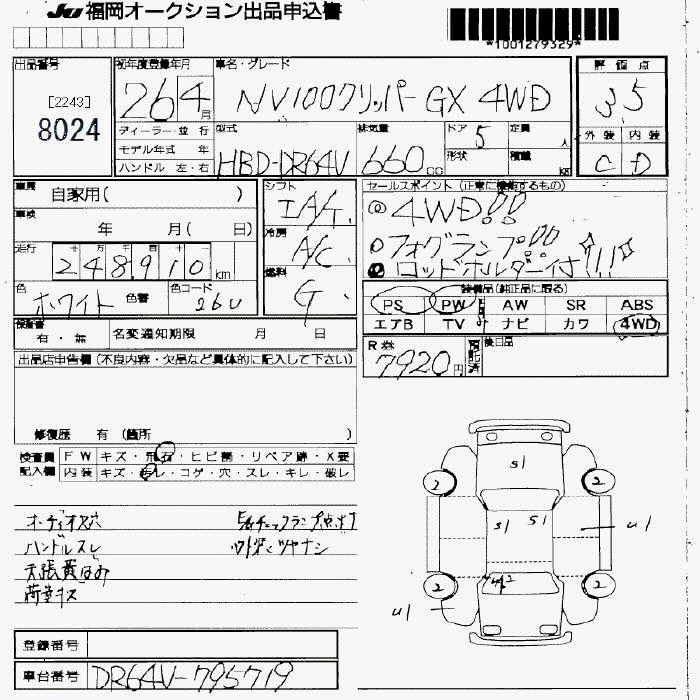 JU 福岡オークション出品申込書
*1001279329*
出品番号
[2243]
8024
初年度登録年月
26 4月
車名・グレード
NV100クリッパー GX 4WD
評価点
3.5
外装 内装
C D
ディーラー・並行
モデル年式 年
ハンドル 左・右
型式
HBD-DR64V
排気量
660cc
ドア 5
形状
定員 人
積載 kg
車歴
自家用( )
車検
年 月( 日)
走行
十 万 千 百 十
248910km
色
ホワイト
色替
色コード
26U
シフト
IA/T
冷房
A/C
燃料
G
セールスポイント (正常に機能するもの)
◎4WD!!
フォグランプ!!
ロッドホルダー付!!!
装備品(純正品に限る)
PS PW AW SR ABS
エアB TV ナビ カワ 4WD
保証書
有・無
名変通知期限 月 日
R券
7920円
預託済
後日品
出品店申告欄(不良内容・欠品など具体的に記入して下さい)
修復歴 有 (箇所 )
検査員記入欄
FW キズ・飛石・ヒビ割・リペア跡・X要
内装 キズ・汚レ・コゲ・穴・スレ・キレ・破レ
オーディオス穴
ハンドルスレ
天張黄ばみ
荷室キズ
外装ツヤナシ
S1
S1 S1
U1
U1
2 2
2 2
登録番号
車台番号 DR64V-795719